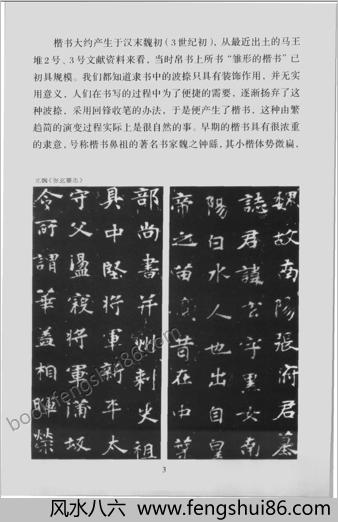 楷书大约产生于汉末魏初（3世纪初），从最近出土的马王
堆2号、3号文献资料来看，当时帛书上所书“雏形的楷书”已
初具规模。我们都知道隶书中的波捺只具有装饰作用，并无实
用意义，人们在书写的过程中为了便捷的需要，逐渐扬弃了这
种波捺，采用回锋收笔的办法，于是便产生了楷书，这种由繁
趋简的演变过程实际上是很自然的事。早期的楷书具有很浓重
的隶意，号称楷书鼻祖的著名书家魏之钟繇，其小楷体势微扁，
北魏《张玄墓志》
魏故南陽張府君墓
誌君諱玄字黑女南
陽白水人也出自皇
帝之苗裔昔在中葉
部尚書并州刾史祖
具中堅將軍新平太
守父盪寇將軍蒲坂
令所謂華蓋相暉榮
bookfengshui86.com
3
风水八六 www.fengshui86.com